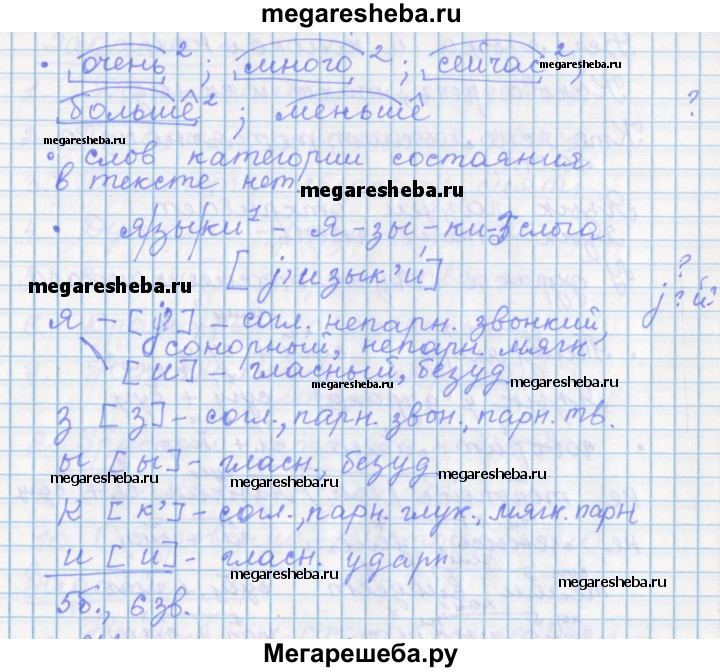 megaresheba.ru
• очень²; много²; сейчас²,
megaresheba.ru
больше²; меньше ?
megaresheba.ru
• слов категории состояния
в тексте нет
megaresheba.ru
• я/зы/ки¹ - я - зы - ки - 3 слога
[j’изык’и́] ?
megaresheba.ru
megaresheba.ru
j? й?
я - [j’] - согл. непарн. звонкий,
сонорный, непарн. мягк
megaresheba.ru
[и] - гласный, безуд
megaresheba.ru
megaresheba.ru
з [з] - согл., парн. звон., парн. тв.
megaresheba.ru
ы [ы] - гласн., безуд
megaresheba.ru
megaresheba.ru
к [к’] - согл., парн. глух., мягк. парн
и [и] - гласн. ударн
megaresheba.ru
megaresheba.ru
5б., 6зв.
Мегарешеба.ру